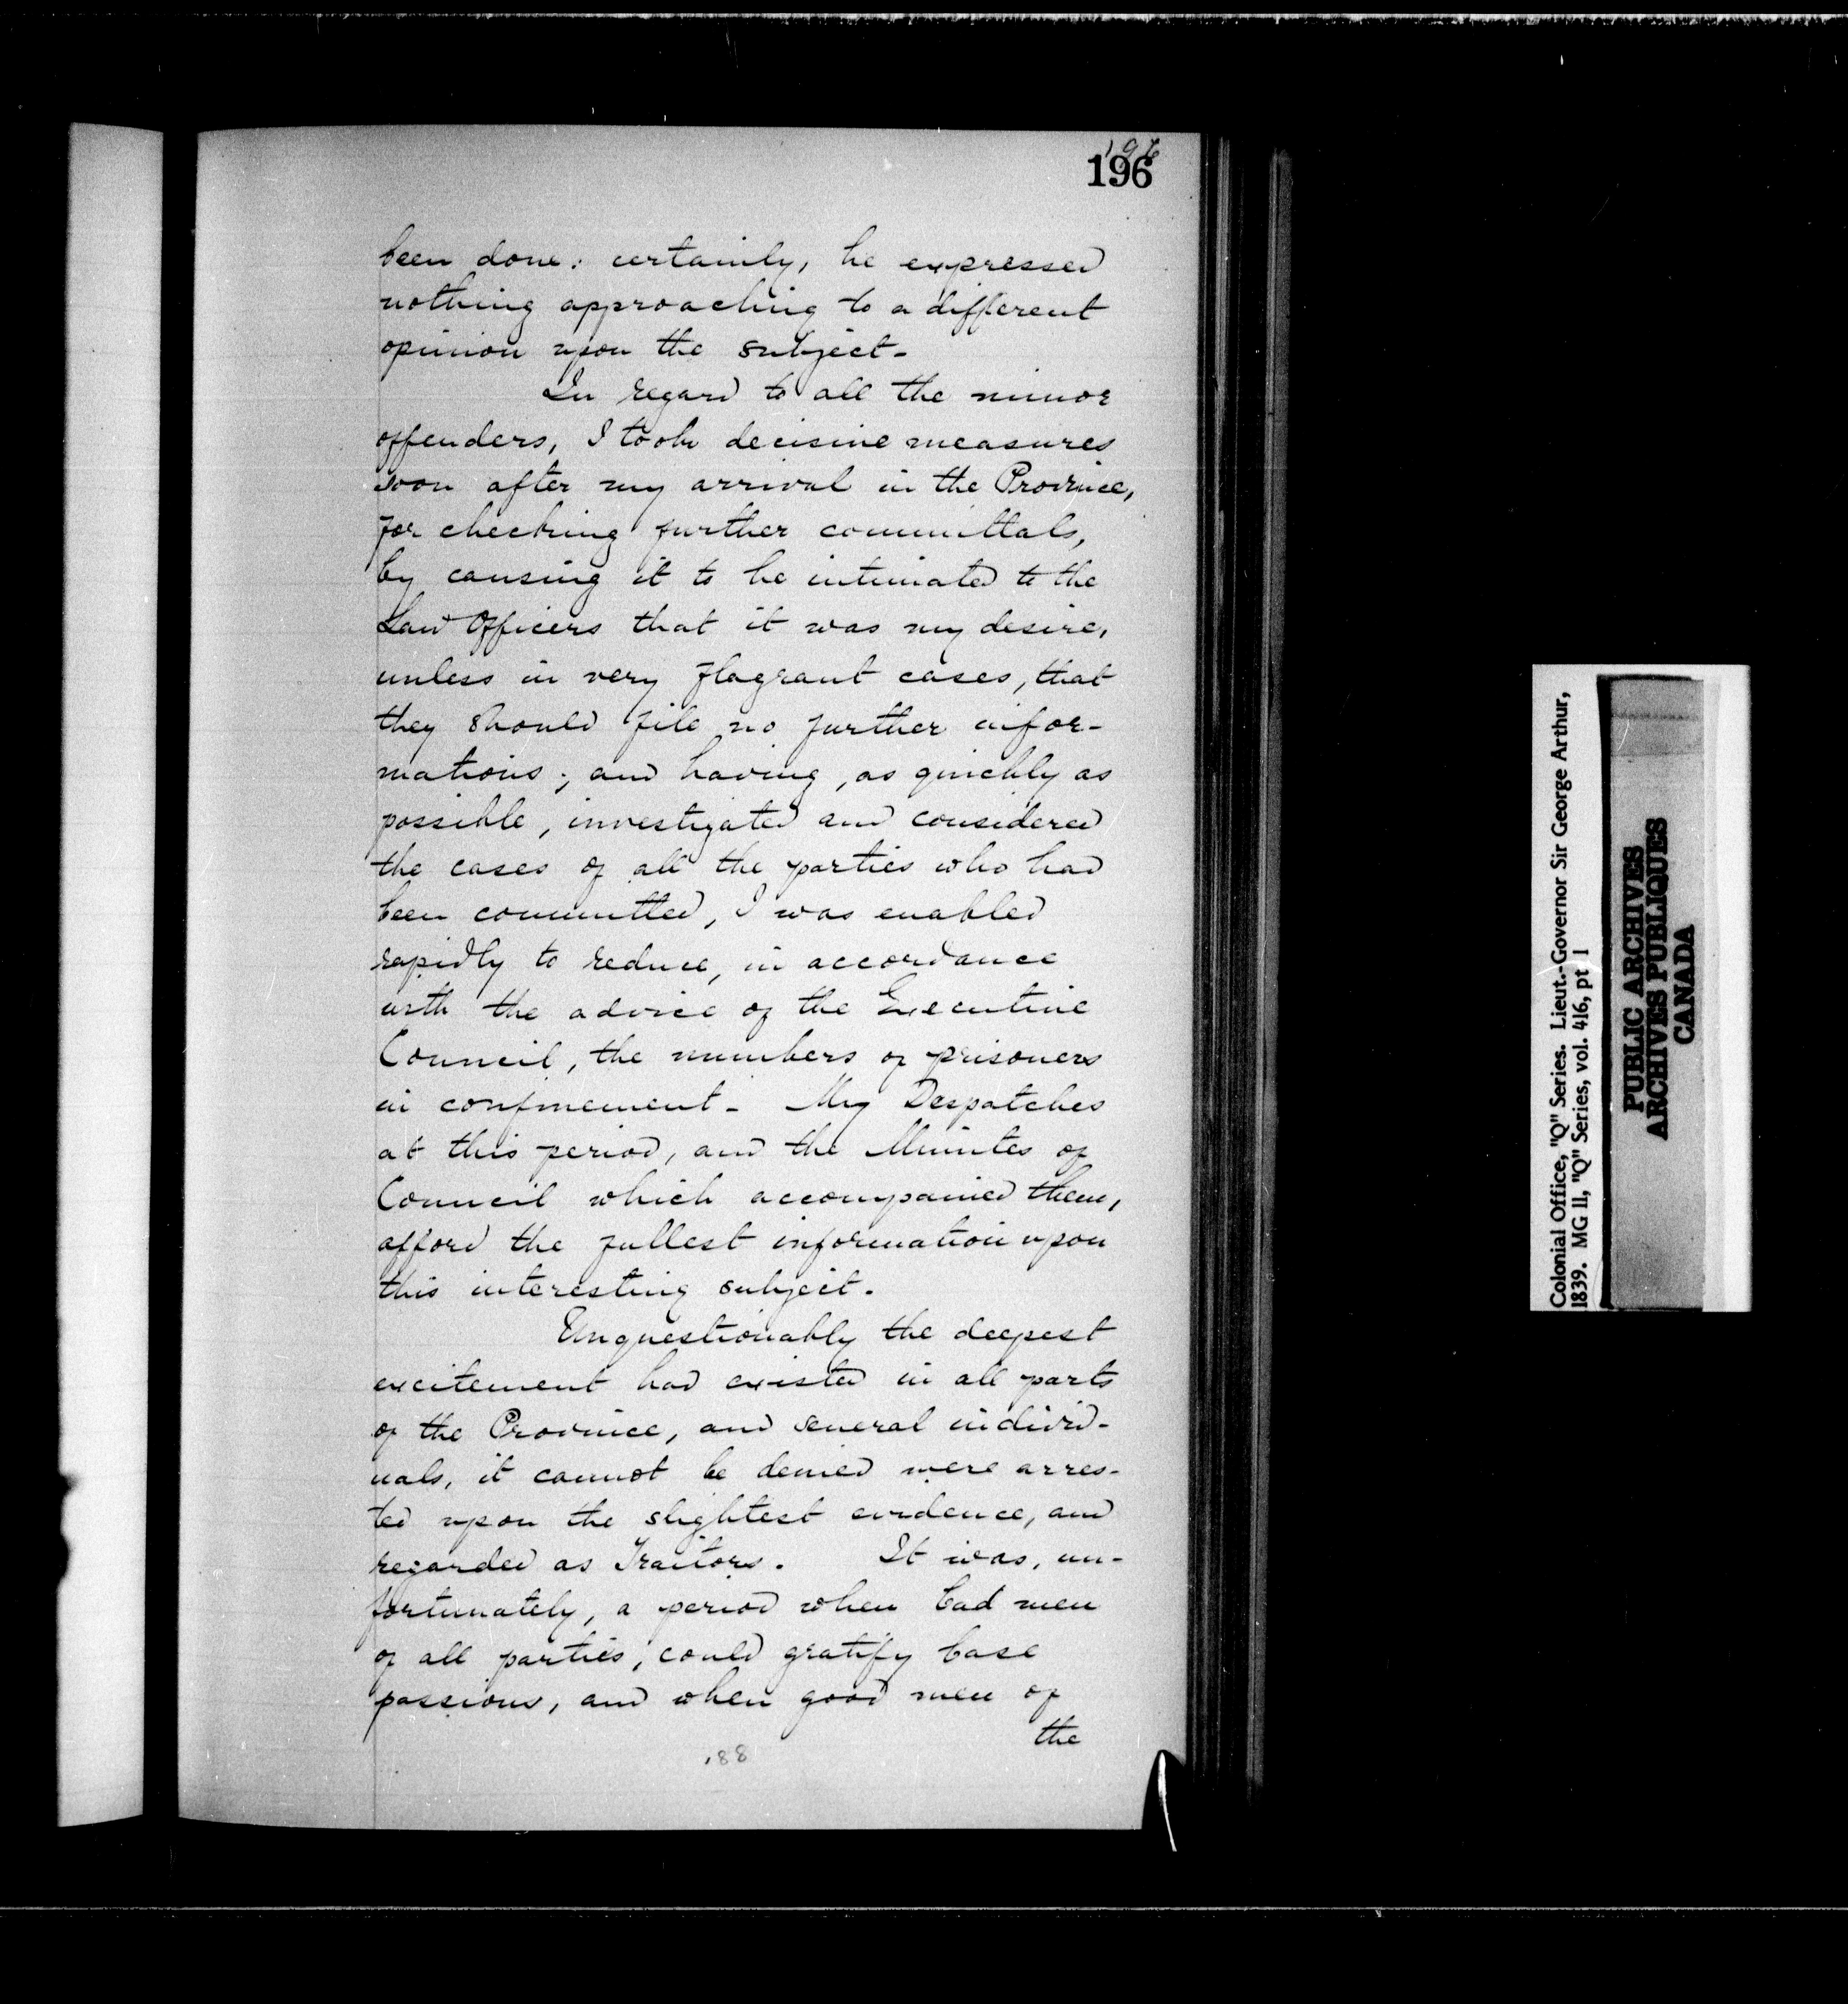 196
196
been done: certainly, he expressed
nothing approaching to a different
opinion upon the subject.
In regard to all the minor
offenders, I took decisive measures
soon after my arrival in the Province,
for checking further committals,
by causing it to be intimated to the
Law Officers that it was my desire,
unless in very flagrant cases, that
they should file no further infor-
mations; and having, as quickly as
possible, investigated and considered
the cases of all the parties who had
been committed, I was enabled
rapidly to reduce, in accordance
with the advice of the Executive
Council, the numbers of prisoners
in confinement - My Despatches
at this period, and the Minutes of
Council which accompanied them,
afford the fullest information upon
this interesting subject.
Unquestionably the deepest
excitement had existed in all parts
of the Province, and several individ-
uals, it cannot be denied were arres-
ted upon the slightest evidence, and
regarded as Traitors. It was, un-
fortunately, a period when bad men
of all parties, could gratify base
passions, and when good men of
the
188
Colonial Office, "Q" Series. Lieut.-Governor Sir George Arthur,
1839. MG 11, "Q" Series, vol. 416, pt 1
PUBLIC ARCHIVES
ARCHIVES PUBLIQUES
CANADA